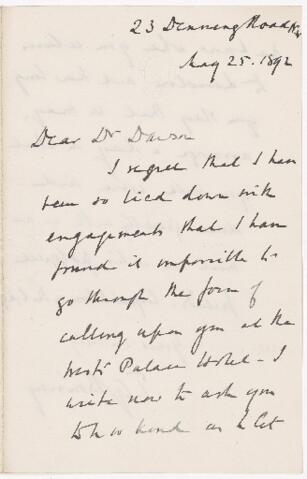 23 Denning Road N.W.
May 25. 1892
Dear Dr Dawson
I regret that I have
been so tied down with
engagements that I have
found it impossible to
go through the form of
calling upon you at the
Palace Hotel - I
write now to ask you
to be so kind as to let